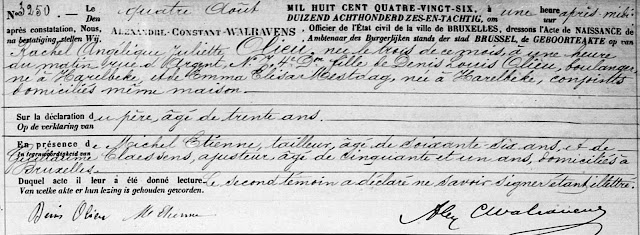 N° 3250. Le Den quatre Août MIL HUIT CENT QUATRE-VINGT-SIX, à une heure après-midi
DUIZEND ACHTHONDERD ZES-EN-TACHTIG, om uur
après constatation, Nous, ALEXANDRE-CONSTANT-WALRAVENS Officier de l'État civil de la ville de BRUXELLES, dressons l'Acte de NAISSANCE de
na bestatiging, stellen Wij, Ambtenaar des Burgerlijken stands der stad BRUSSEL, de GEBOORTEAKTE op van
Rachel Angélique Juliette Olieu, née le trois de ce mois, à une heure
du matin, rue d'Argent, N° 7, 4e Don fille de Denis Louis Olieu, boulanger,
né à Harelbeke et de Emma Elisa Mestdag, née à Harelbeke, conjoints
domiciliés même maison.
Sur la déclaration du père, âgé de trente ans.
Op de verklaring van
En présence de Michel Etienne, tailleur, âgé de soixante-six ans, et de
In tegenwoordigheid van Claessens, ajusteur, âgé de cinquante et un ans, domiciliés à
Bruxelles.
Duquel acte il leur a été donné lecture. Le second témoin a déclaré ne savoir signer étant illettré.
Van welke akte er hun lezing is gehouden geworden.
Denis Olieu M Etienne Alex CWalravens